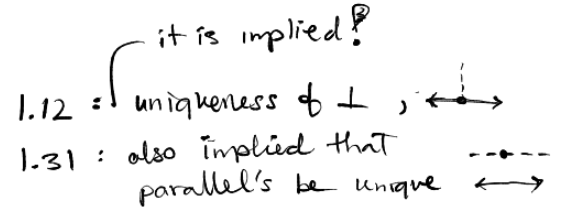 it is implied?
1.12 : uniqueness of ⊥ ,
1.31 : also implied that
parallel's be unique